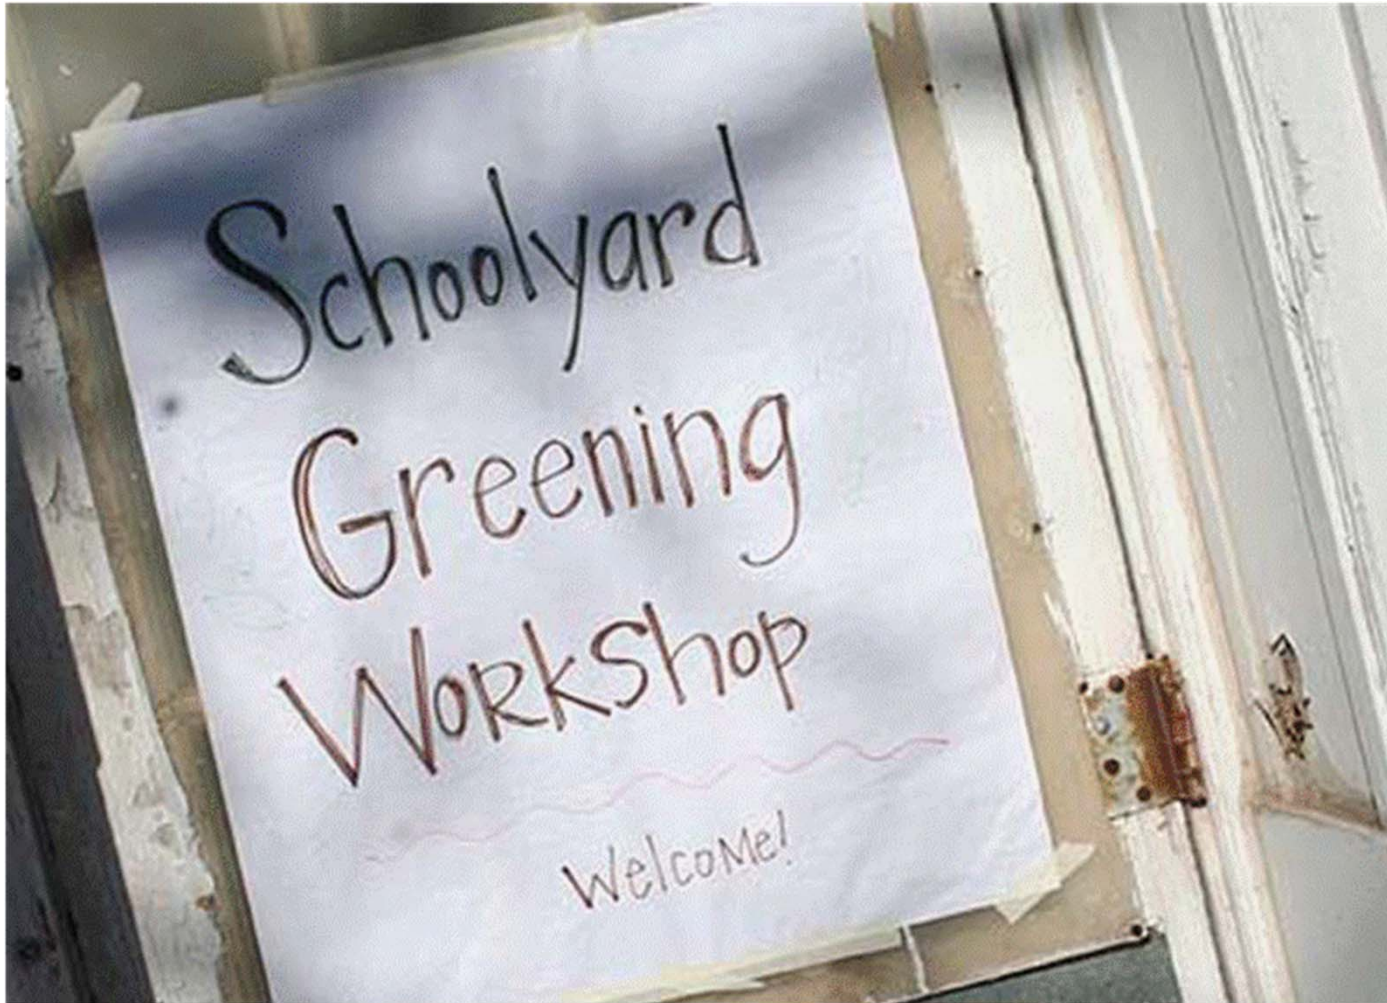 Schoolyard
Greening
Workshop
Welcome!